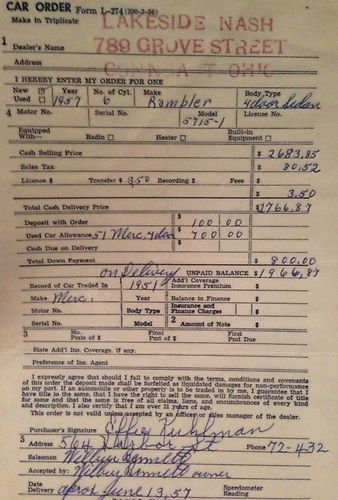 CAR ORDER Form L-274 (200-3-56)
Make in Triplicate
LAKESIDE NASH
789 GROVE STREET
OHIO
1
Dealer's Name
Address
I HEREBY ENTER MY ORDER FOR ONE
New Year No. of Cyl. Make Body Type
Used 1957 6 Rambler 4 door Sedan
4 Motor No. Serial No. Model License No.
5715-1
Equipped Built-in
With— Radio Heater Equipment
Cash Selling Price $ 2683.85
Sales Tax $ 80.52
License $ Transfer $ 3.50 Recording $ Fees $
$ 3.50
Total Cash Delivery Price $2766.87
Deposit with Order $ 100 00
Used Car Allowance 51 Merc. 4 door $ 700 00
Cash Due on Delivery $
Total Down Payment $ 800.00
on Delivery UNPAID BALANCE $1966.87
Record of Car Traded In 1951 Add'l Coverage Insurance Premium $
Make Merc. Year Balance to Finance $
Motor No. Body Type Insurance and Finance Charges $
Serial No. Model 2 Amount of Note $
3 Mo. Final First
Pmts of $ Pmt of $ Pmt Due
State Add'l Ins. Coverage, if any.
Preference of Ins. Agent
I expressly agree that should I fail to comply with the terms, conditions and covenants
of this order the deposit made shall be forfeited as liquidated damages for non-performance
on my part. If an automobile or other property is to be traded in by me, I guarantee that I
have title to the same, that I have the right to sell the same, will furnish certificate of title
for same and that the same is free of all claims, liens, and encumbrances of every kind
and description. I also certify that I am over 21 years of age.
This order is not valid unless accepted by an officer or sales manager of the dealer.
Purchaser's Signature Effie Kuhlman
5 Address 564 Harbor St Phone 72-432
Salesman Wilbur Bennett
Accepted by: Wilbur Bennett owner
Date Speedometer
Delivery aprox June 13, 57 Reading